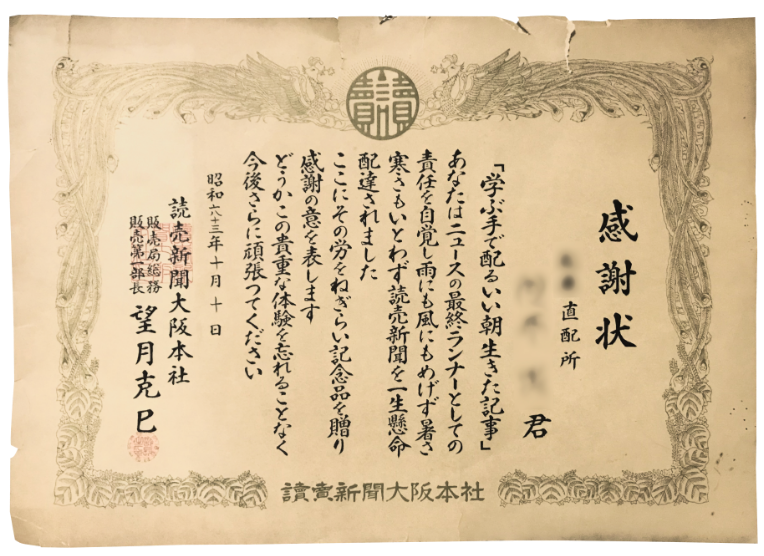 讀賣
感謝状
直配所
君
「学ぶ手で配るいい朝生きた記事」
あなたはニュースの最終ランナーとしての
責任を自覚し雨にも風にもめげず暑さ
寒さもいとわず読売新聞を一生懸命
配達されました
ここにその労をねぎらい記念品を贈り
感謝の意を表します
どうかこの貴重な体験を忘れることなく
今後さらに頑張つてください
昭和六十三年十月十日
読売新聞大阪本社
販売局総務
販売第一部長
望月克巳
讀賣新聞大阪本社